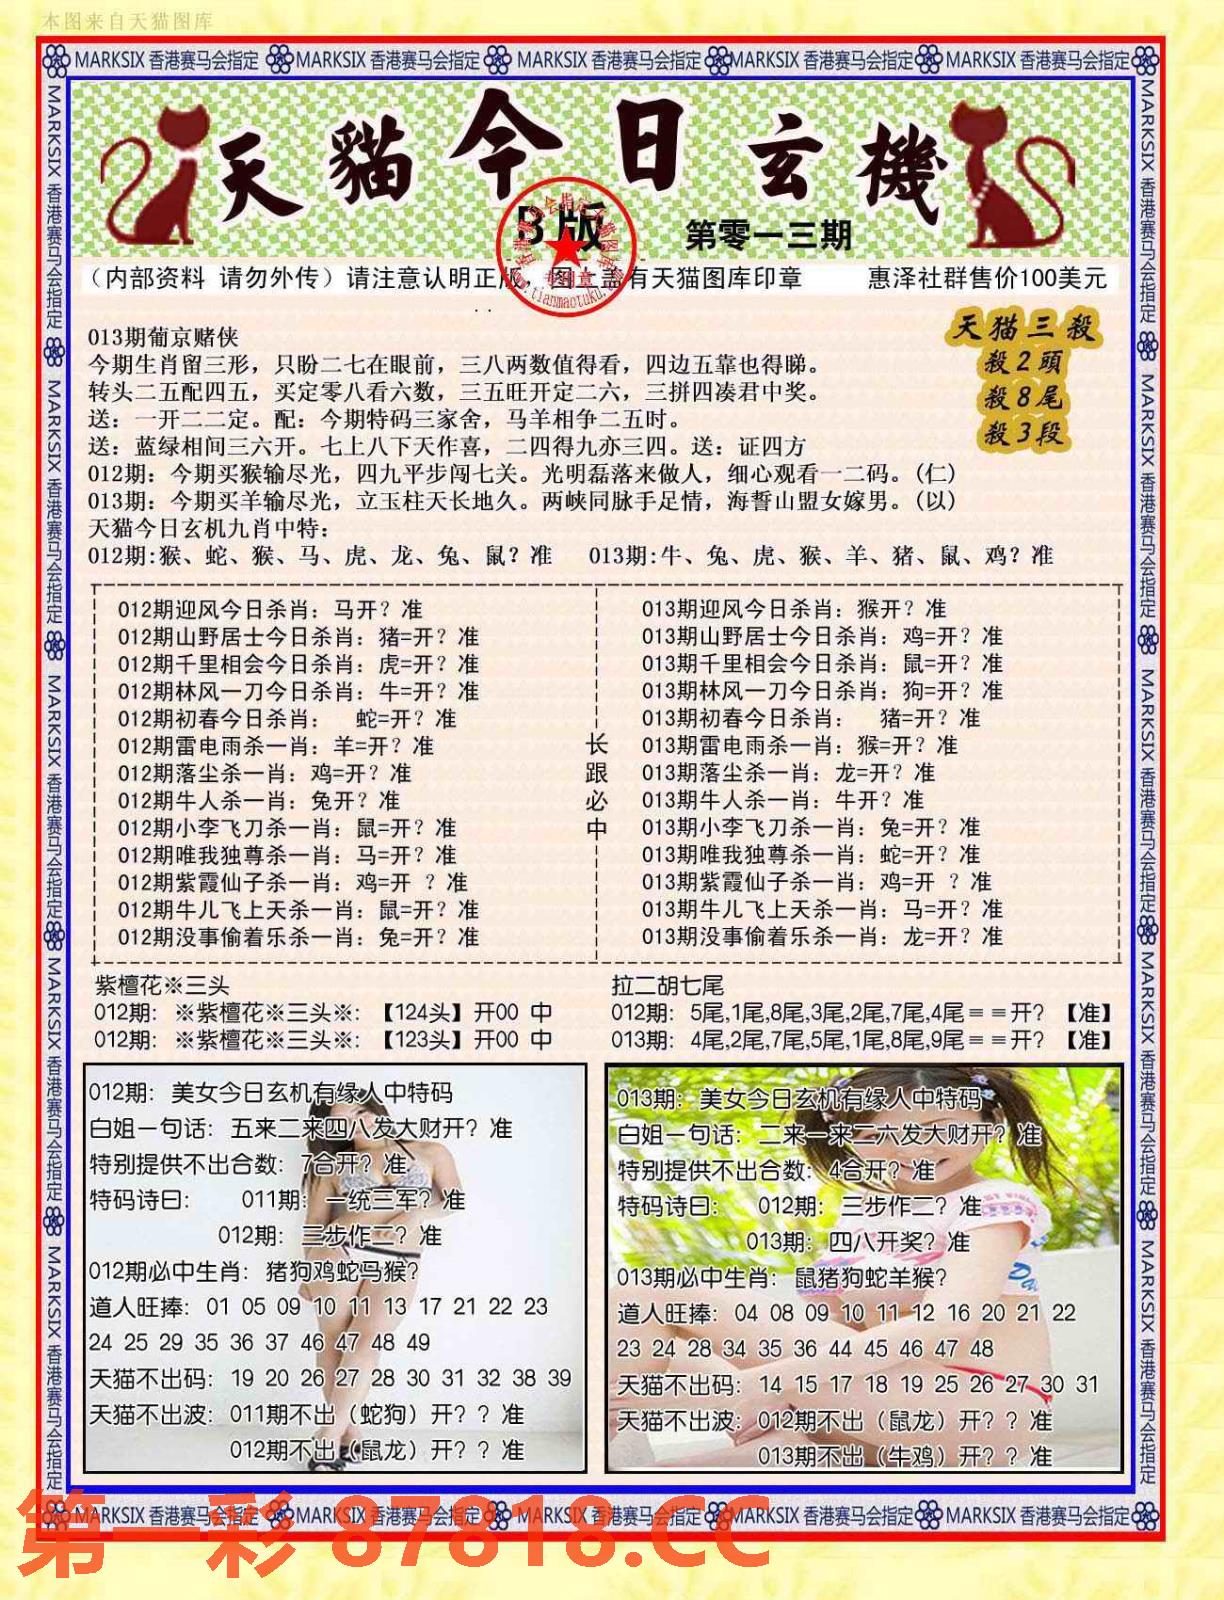 本图来自天猫图库
MARKSIX 香港赛马会指定 MARKSIX 香港赛马会指定 MARKSIX 香港赛马会指定 MARKSIX 香港赛马会指定 MARKSIX 香港赛马会指定
天貓今日玄機
B版
第零一三期
（内部资料 请勿外传）请注意认明正版 图上盖有天猫图库印章 惠泽社群售价100美元
天猫三殺
殺2頭
殺8尾
殺3段
013期葡京赌侠
今期生肖留三形，只盼二七在眼前，三八两数值得看，四边五靠也得睇。
转头二五配四五，买定零八看六数，三五旺开定二六，三拼四凑君中奖。
送：一开二二定。配：今期特码三家舍，马羊相争二五时。
送：蓝绿相间三六开。七上八下天作喜，二四得九亦三四。送：证四方
012期：今期买猴输尽光，四九平步闯七关。光明磊落来做人，细心观看一二码。(仁)
013期：今期买羊输尽光，立玉柱天长地久。两峡同脉手足情，海誓山盟女嫁男。(以)
天猫今日玄机九肖中特：
012期:猴、蛇、猴、马、虎、龙、兔、鼠？准 013期:牛、兔、虎、猴、羊、猪、鼠、鸡？准
012期迎风今日杀肖：马开？准
012期山野居士今日杀肖：猪=开？准
012期千里相会今日杀肖：虎=开？准
012期林风一刀今日杀肖：牛=开？准
012期初春今日杀肖： 蛇=开？准
012期雷电雨杀一肖：羊=开？准
012期落尘杀一肖：鸡=开？准
012期牛人杀一肖：兔开？准
012期小李飞刀杀一肖：鼠=开？准
012期唯我独尊杀一肖：马=开？准
012期紫霞仙子杀一肖：鸡=开 ？准
012期牛儿飞上天杀一肖：鼠=开？准
012期没事偷着乐杀一肖：兔=开？准
长跟必中
013期迎风今日杀肖：猴开？准
013期山野居士今日杀肖：鸡=开？准
013期千里相会今日杀肖：鼠=开？准
013期林风一刀今日杀肖：狗=开？准
013期初春今日杀肖： 猪=开？准
013期雷电雨杀一肖：猴=开？准
013期落尘杀一肖：龙=开？准
013期牛人杀一肖：牛开？准
013期小李飞刀杀一肖：兔=开？准
013期唯我独尊杀一肖：蛇=开？准
013期紫霞仙子杀一肖：鸡=开 ？准
013期牛儿飞上天杀一肖：马=开？准
013期没事偷着乐杀一肖：龙=开？准
紫檀花※三头
012期：※紫檀花※三头※：【124头】开00 中
012期：※紫檀花※三头※：【123头】开00 中
拉二胡七尾
012期：5尾,1尾,8尾,3尾,2尾,7尾,4尾＝＝开？【准】
013期：4尾,2尾,7尾,5尾,1尾,8尾,9尾＝＝开？【准】
012期：美女今日玄机有缘人中特码
白姐一句话：五来二来四八发大财开？准
特别提供不出合数：7合开？准
特码诗曰： 011期：一统三军？准
012期：三步作二？准
012期必中生肖：猪狗鸡蛇马猴？
道人旺捧：01 05 09 10 11 13 17 21 22 23
24 25 29 35 36 37 46 47 48 49
天猫不出码：19 20 26 27 28 30 31 32 38 39
天猫不出波：011期不出（蛇狗）开？？准
012期不出（鼠龙）开？？准
013期：美女今日玄机有缘人中特码
白姐一句话：二来一来二六发大财开？准
特别提供不出合数：4合开？准
特码诗曰： 012期：三步作二？准
013期：四八开奖？准
013期必中生肖：鼠猪狗蛇羊猴？
道人旺捧：04 08 09 10 11 12 16 20 21 22
23 24 28 34 35 36 44 45 46 47 48
天猫不出码：14 15 17 18 19 25 26 27 30 31
天猫不出波：012期不出（鼠龙）开？？准
013期不出（牛鸡）开？？准
MARKSIX 香港赛马会指定 MARKSIX 香港赛马会指定 MARKSIX 香港赛马会指定 MARKSIX 香港赛马会指定 MARKSIX 香港赛马会指定
第一彩 87818.CC
MARKSIX 香港赛马会指定 MARKSIX 香港赛马会指定 MARKSIX 香港赛马会指定 MARKSIX 香港赛马会指定 MARKSIX 香港赛马会指定
MARKSIX 香港赛马会指定 MARKSIX 香港赛马会指定 MARKSIX 香港赛马会指定 MARKSIX 香港赛马会指定 MARKSIX 香港赛马会指定